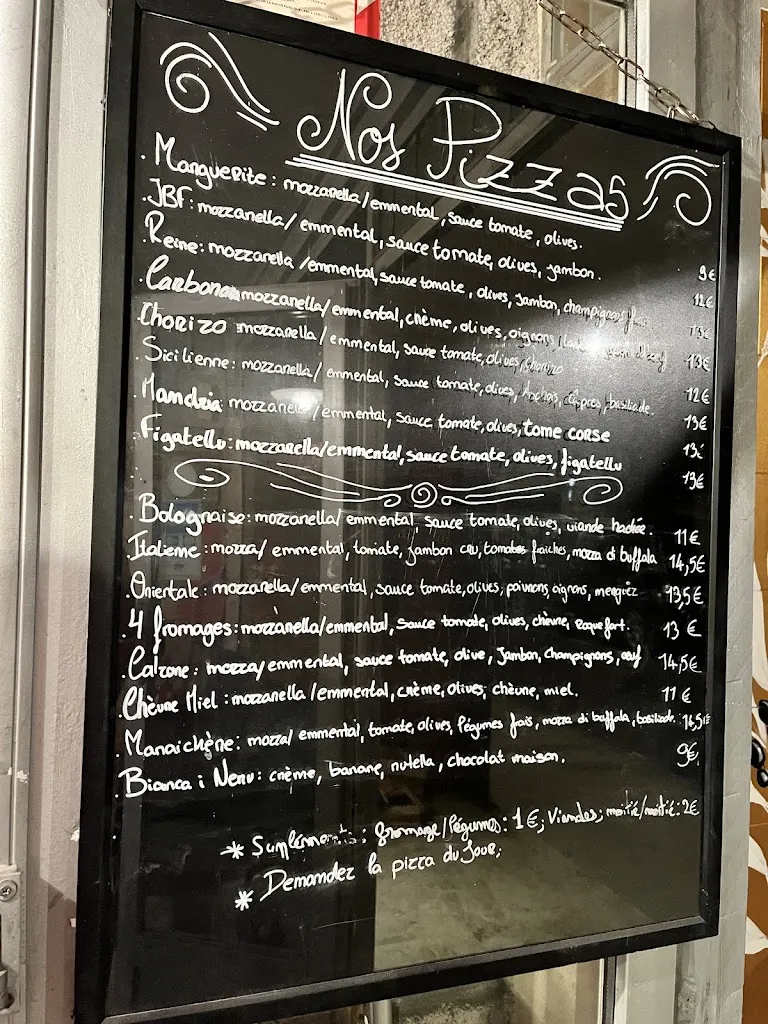 Nos Pizzas
. Marguerite : mozzanella/emmental, sauce tomate, olives. 9€
. JBF : mozzanella/ emmental, sauce tomate, olives, jambon. 12€
. Reine : mozzanella /emmental, sauce tomate, olives, jambon, champignons 13€
. Carbonara mozzanella/ emmental, crème, olives, oignons, 13€
. Chorizo : mozzanella / emmental, sauce tomate, olives, chorizo 12€
. Sicilienne : mozzanella / emmental, sauce tomate, olives, câpres, basilicade. 13€
. Mandria mozzanella/emmental, sauce tomate, olives, tome corse 13€
. Figatellu : mozzanella/emmental, sauce tomate, olives, figatellu 13€
. Bolognaise : mozzanella/ emmental, sauce tomate, olives, viande hachée. 11€
. Italienne : mozza/ emmental, tomate, jambon cru, tomates fraiches, mozza di buffala 14,5€
. Orientale : mozzanella/emmental, sauce tomate, olives, poivrons, oignons, merguez 13,5€
. 4 fromages : mozzanella/emmental, sauce tomate, olives, chèvre, Roquefort. 13 €
. Calzone : mozza/emmental, sauce tomate, olive, Jambon, champignons, oeuf 14,5€
. Chèvre Miel : mozzanella /emmental, crème, olives, chèvre, miel. 11 €
. Manaichène : mozza/ emmental, tomate, olives, légumes fais, mozza di buffala, basilicade. 14,5€
. Bianca i Neru : crème, banane, nutella, chocolat maison. 9€
* Suppléments : fromage/légumes : 1€; Viandes; moitié/moitié : 2€
* Demandez la pizza du Jour;